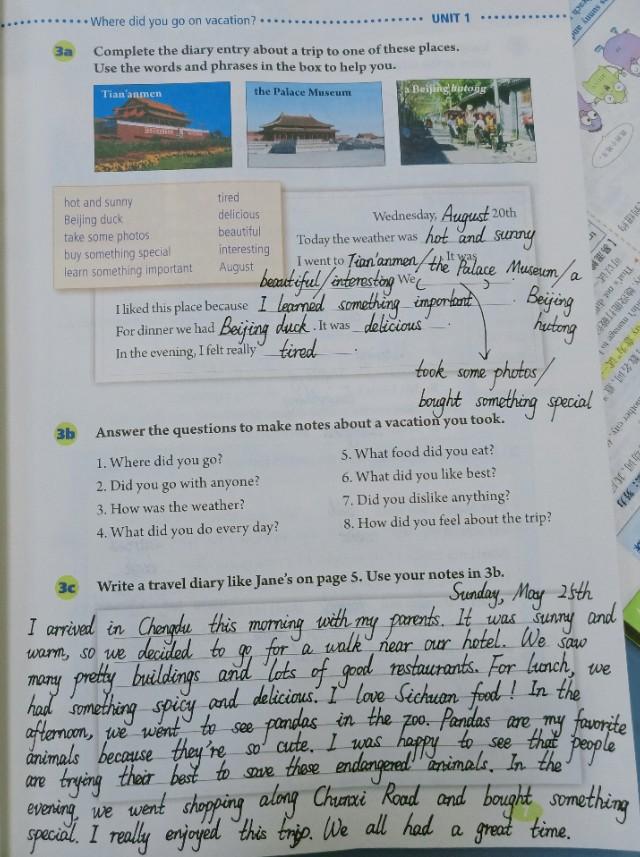 Where did you go on vacation? UNIT 1
3a Complete the diary entry about a trip to one of these places.
Use the words and phrases in the box to help you.
Tian'anmen
the Palace Museum
a Beijing hutong
hot and sunny tired
Beijing duck delicious
take some photos beautiful
buy something special interesting
learn something important August
Wednesday, August 20th
Today the weather was hot and sunny
I went to Tian'anmen/the Palace Museum/a Beijing hutong It was
beautiful/interesting We
took some photos/
bought something special
I liked this place because I learned something important.
For dinner we had Beijing duck. It was delicious.
In the evening, I felt really tired.
3b Answer the questions to make notes about a vacation you took.
1. Where did you go?
2. Did you go with anyone?
3. How was the weather?
4. What did you do every day?
5. What food did you eat?
6. What did you like best?
7. Did you dislike anything?
8. How did you feel about the trip?
3c Write a travel diary like Jane's on page 5. Use your notes in 3b.
Sunday, May 25th
I arrived in Chengdu this morning with my parents. It was sunny and
warm, so we decided to go for a walk near our hotel. We saw
many pretty buildings and lots of good restaurants. For lunch, we
had something spicy and delicious. I love Sichuan food! In the
afternoon, we went to see pandas in the zoo. Pandas are my favorite
animals because they're so cute. I was happy to see that people
are trying their best to save these endangered animals. In the
evening, we went shopping along Chunxi Road and bought something
special. I really enjoyed this trip. We all had a great time.